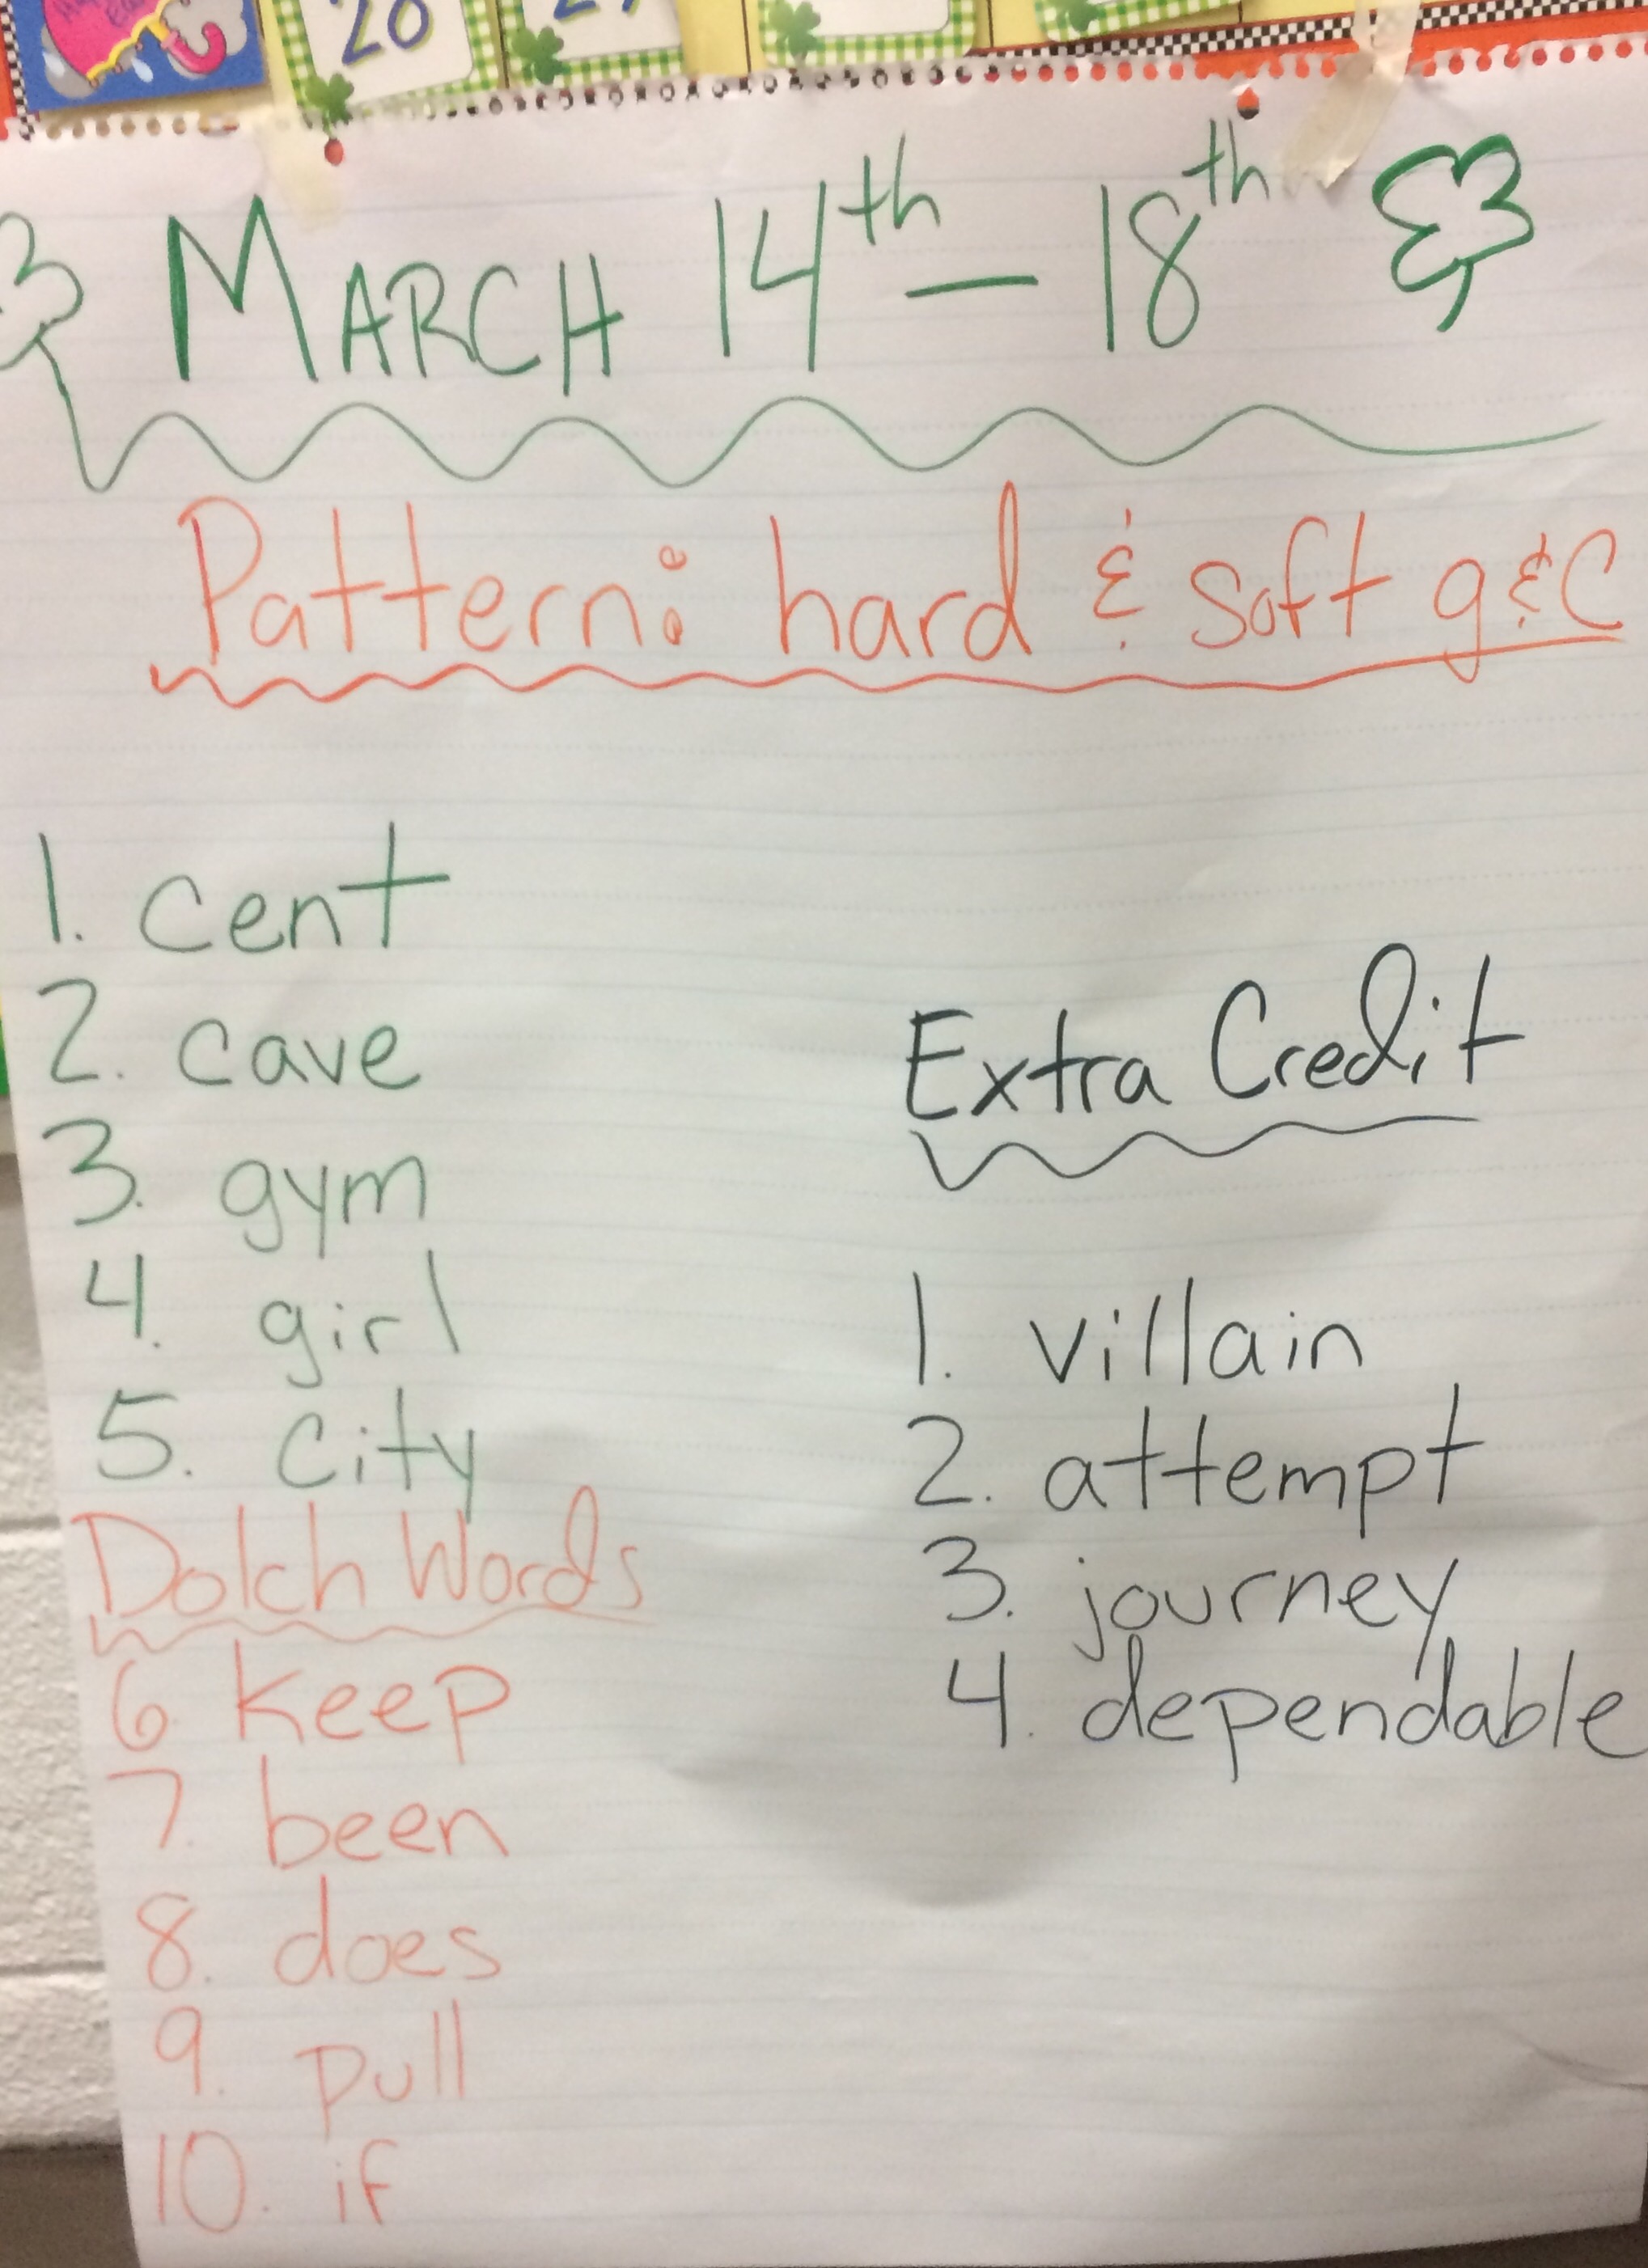 20
March 14th – 18th
Pattern: hard & soft g & c
1. cent
2. cave
3. gym
4. girl
5. city
Dolch Words
6. keep
7. been
8. does
9. pull
10. if
Extra Credit
1. villain
2. attempt
3. journey
4. dependable